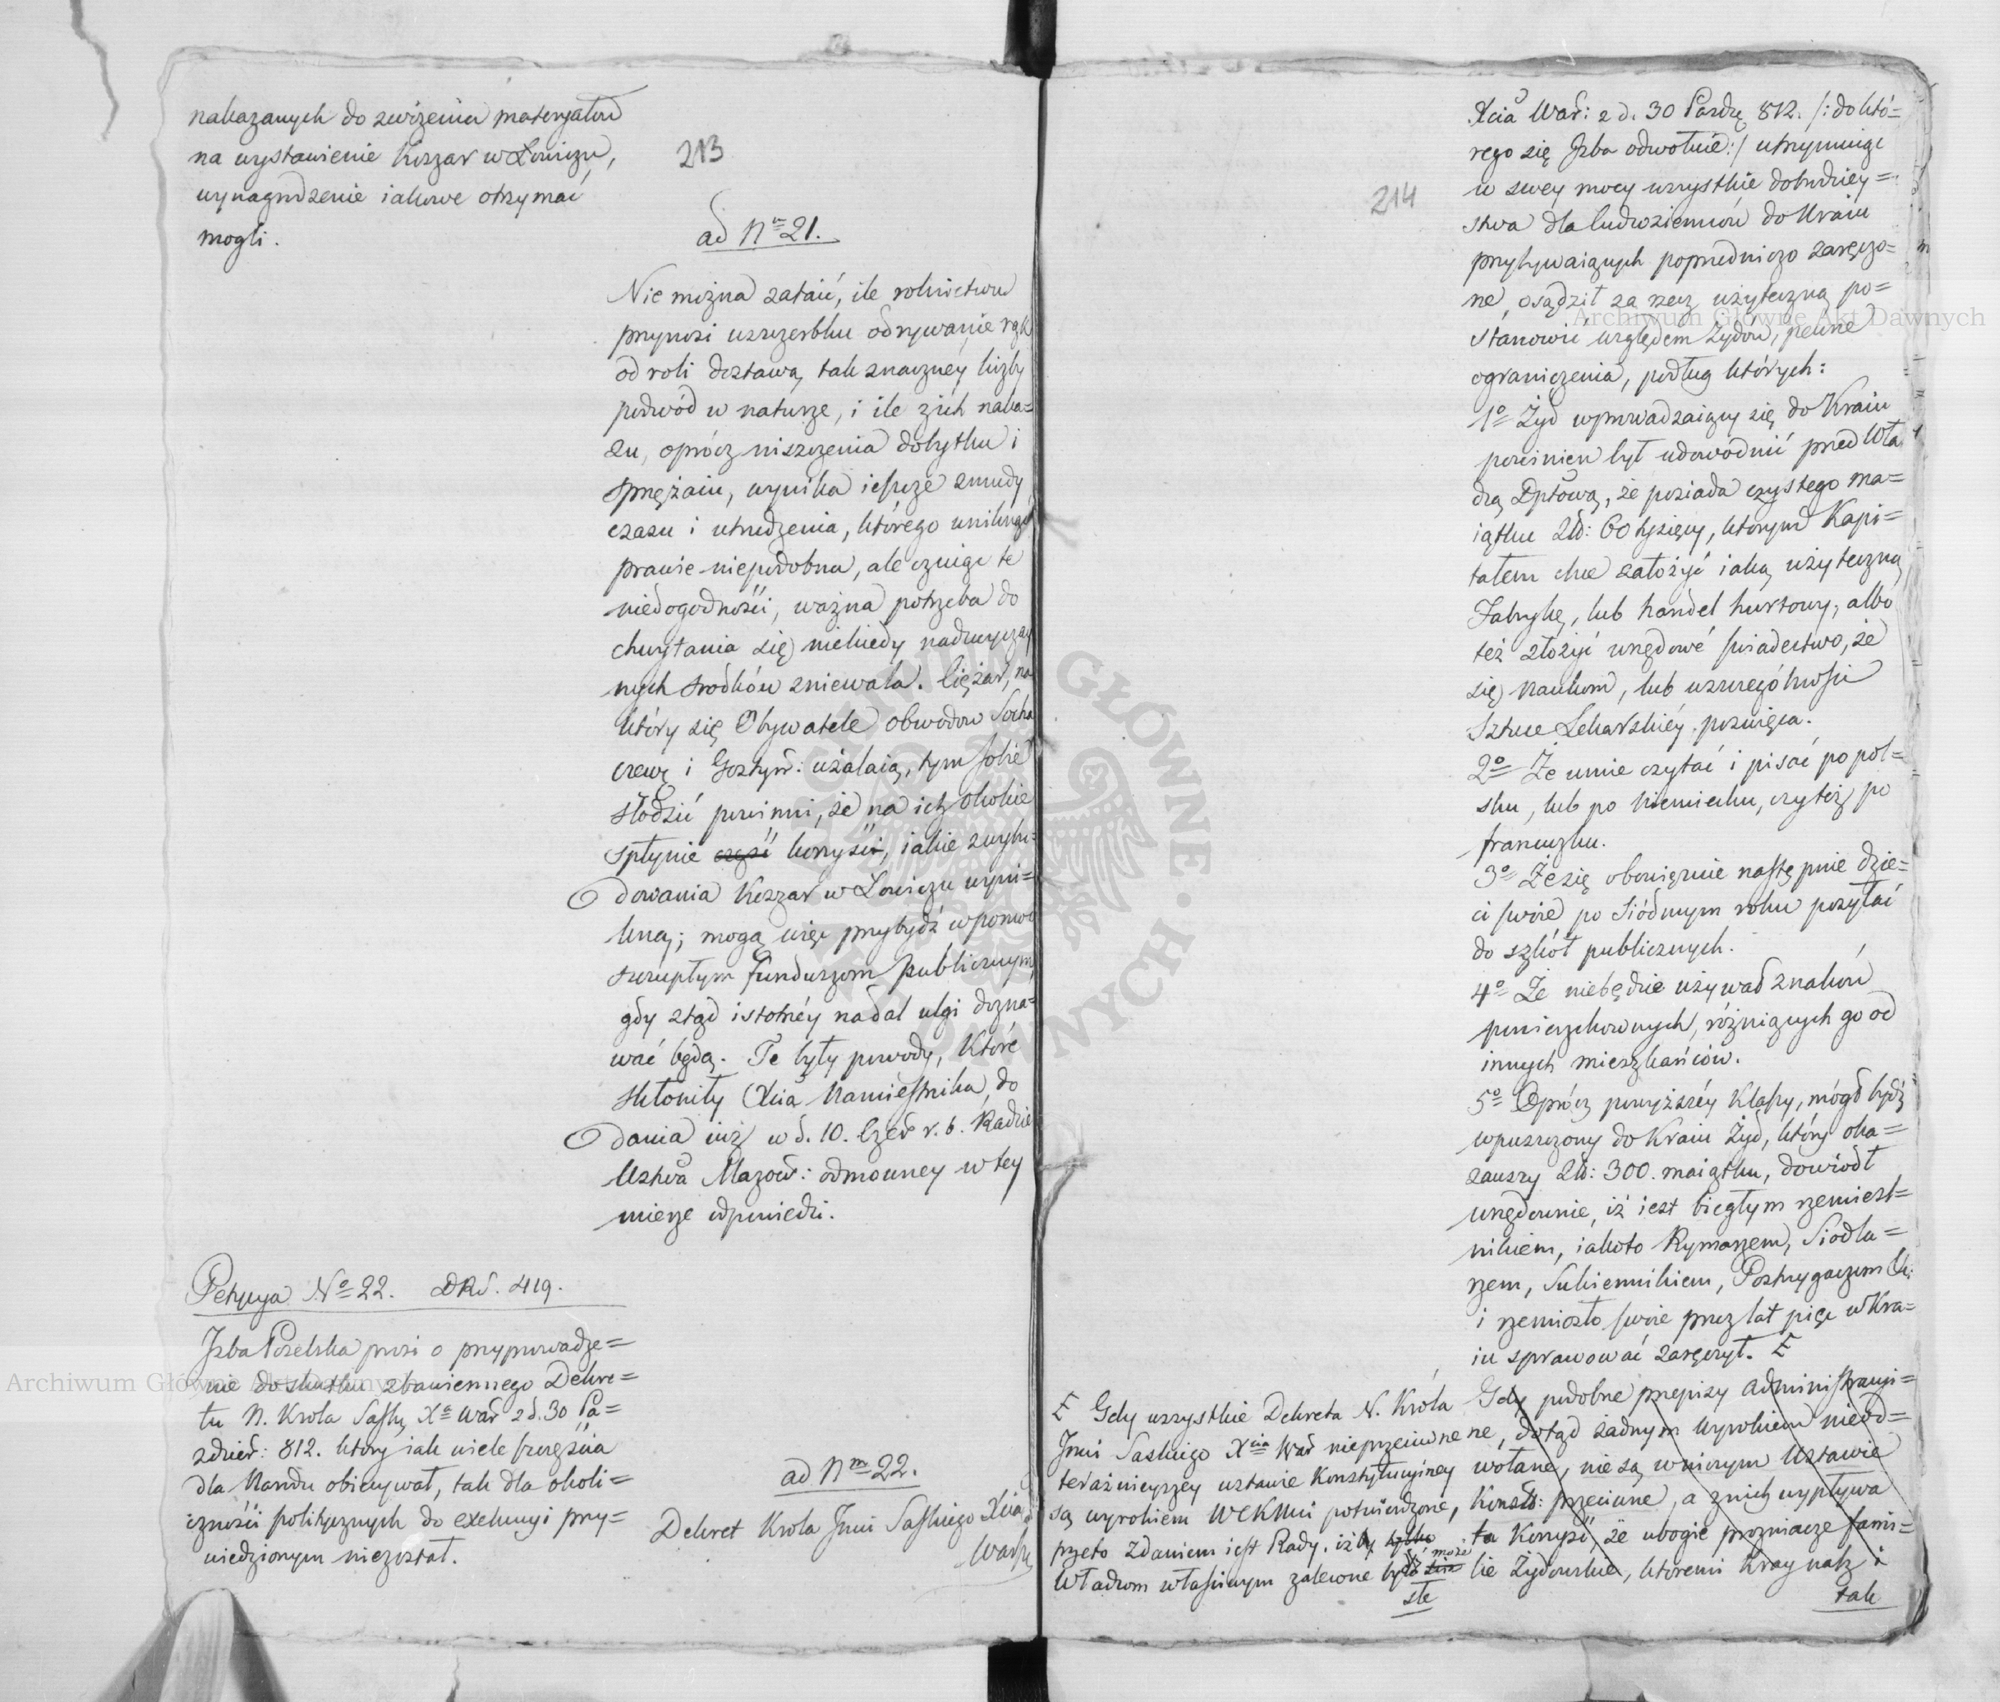 nakazanych do zwiezienia materyałów
na wystawienie Koszar w Łowiczu,
wynagrodzenie iakowe otrzymać
mogli.
213
ad Nm 21.
Nie można zataić, ile rolnictwu
przynosi uszczerbku odrywanie rąk
od roli dostawą tak znaczney liczby
podwód w naturze, i ile z ich naka=
zu, oprócz niszczenia dobytku i
sprzężaiu, wynika ieszcze zmudy
czasu i utrudzenia, którego uniknąć
prawie niepodobna, ale czuiąc te
niedogodności, ważna potrzeba do
chwytania się niekiedy nadzwyczay
nych srodków zniewala. Ciężar, na
który się Obywatele obwodow Socha
czew: i Gostyń: użalaią, tym sobie
słodzić powinni, że na ich okolie
spłynie część korzyści, iakie z wybu=
dowania Koszar w Łowiczu wyni=
kną; mogą więc przybydź w pomoc
szczupłym funduszom publicznym,
gdy ztąd istotney nadal ulgi dozna=
wać będą. Te były powody, które
skłoniły Xcia Namiestnika, do
dania iuż w d. 10. Czer r. b. Radzie
Wztwa Mazow: odmowney w tey
mierze odpowiedzi.
Petycya No 22. DRS. 419.
Jzba Poselska prosi o przyprowadze=
nie do skutku zbawiennego Dekre=
tu N. Krola Sasko Xa War z d. 30 Pa=
zdzier: 812. ktory iak wiele szczęścia
dla Narodu obiecywał, tak dla okoli=
czności politycznych do exekucyi przy=
wiedzionym niezostał.
ad Nm 22.
Dekret Krola Jmci Saskiego Xcia
Warsz
214
Xcia War: z d. 30 Paźdź 812. /: do któ=
rego się Jzba odwołuie :/ utrzymuiąc
w swey mocy wszystkie dobrodziey=
stwa dla ludwziemców do Kraiu
przybywaiących poprzedniczo zaręczo=
ne, osądził za rzecz użyteczną po=
stanowić względem Żydów, pewne
ograniczenia, podług których:
1o Żyd wprowadzaiący się do Kraiu
powinien był udowodnić przed Wła
dzą Dptową, że posiada czystego ma=
iątku Złł: 60 tysięcy, którym Kapi=
tałem chce założyć iaką użyteczną
Fabrykę, lub handel hurtowy, albo
też złożyć urzędowe świadectwo, że
się naukom, lub wszczególności
Sztuce Lekarskiey poswięca.
2o Że umie czytać i pisać po pol=
sku, lub po niemiecku, czyteż po
francuzku.
3o Że się obowięzuie następnie dzie=
ci swoie po siódmym roku posyłać
do szkół publicznych.
4o Że niebędzie używał znaków
powierzchownych, różniących go od
innych mieszkańców.
5o Oprócz powyższéy Klassy, mógł bydź
wpuszczony do Kraiu Żyd, który oka=
zawszy Złł: 300. maiątku, dowiódł
urzędownie, iż iest biegłym rzemieśl=
nikiem, iakoto Rymarzem, Siodla=
rzem, Sukiennikiem, Postrzygaczem &c:
i rzemiosło swoie przez lat pięć w Kra=
iu sprawować zaręczył. E
E Gdy wszystkie Dekreta N. Króla
Jmci Saskiego Xcia War nieprzeciwne
teraźnieyszey ustawie Konstytucyiney
są wyrokiem WCKMci potwierdzone,
przeto zdaniem iest Rady, iż by tylko
Władzom właściwym zalecone bydź może
ste
Gdy podobne przepisy administracyi=
ne, dotąd żadnym wyrokiem nieod=
wołane, nie są w niczym Ustawie
Konst: przeciwne, a z nich wypływa
ta Korzyść, że ubogie prozniacze fami=
lie Żydowskie, któremi Kray nasz i
tak
Archiwum Główne Akt Dawnych
Archiwum Główne Akt Dawnych